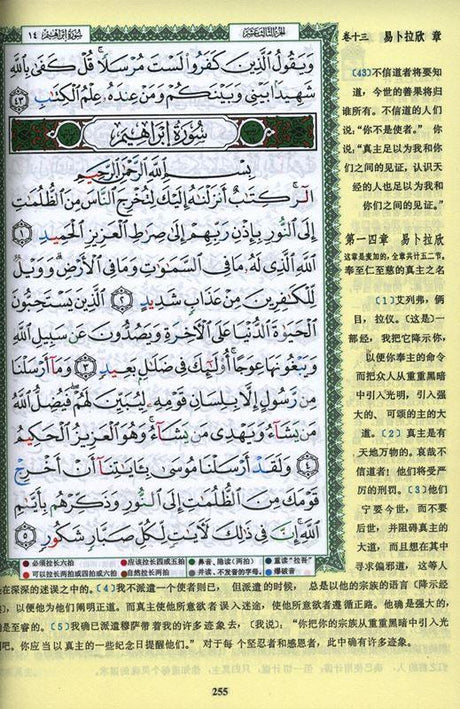 سورة إبراهيم ١٤
الجزء الثالث عشر
卷十三 易卜拉欣 章
وَيَقُولُ ٱلَّذِينَ كَفَرُواْ لَسْتَ مُرْسَلًا ۚ قُلْ كَفَىٰ بِٱللَّهِ
شَهِيدًۢا بَيْنِى وَبَيْنَكُمْ وَمَنْ عِندَهُۥ عِلْمُ ٱلْكِتَٰبِ ٤٣
سُورَةُ إِبْرَاهِيم
بِسْمِ ٱللَّهِ ٱلرَّحْمَٰنِ ٱلرَّحِيمِ
الٓر ۚ كِتَٰبٌ أَنزَلْنَٰهُ إِلَيْكَ لِتُخْرِجَ ٱلنَّاسَ مِنَ ٱلظُّلُمَٰتِ
إِلَى ٱلنُّورِ بِإِذْنِ رَبِّهِمْ إِلَىٰ صِرَٰطِ ٱلْعَزِيزِ ٱلْحَمِيدِ ١
ٱللَّهِ ٱلَّذِى لَهُۥ مَا فِى ٱلسَّمَٰوَٰتِ وَمَا فِى ٱلْأَرْضِ ۗ وَوَيْلٌ
لِّلْكَٰفِرِينَ مِنْ عَذَابٍ شَدِيدٍ ٢ ٱلَّذِينَ يَسْتَحِبُّونَ
ٱلْحَيَوٰةَ ٱلدُّنْيَا عَلَى ٱلْءَاخِرَةِ وَيَصُدُّونَ عَن سَبِيلِ ٱللَّهِ
وَيَبْغُونَهَا عِوَجًا ۚ أُوْلَٰٓئِكَ فِى ضَلَٰلٍۭ بَعِيدٍ ٣ وَمَآ أَرْسَلْنَا
مِن رَّسُولٍ إِلَّا بِلِسَانِ قَوْمِهِۦ لِيُبَيِّنَ لَهُمْ ۖ فَيُضِلُّ ٱللَّهُ
مَن يَشَآءُ وَيَهْدِى مَن يَشَآءُ ۚ وَهُوَ ٱلْعَزِيزُ ٱلْحَكِيمُ
٤ وَلَقَدْ أَرْسَلْنَا مُوسَىٰ بِـَٔايَٰتِنَآ أَنْ أَخْرِجْ
قَوْمَكَ مِنَ ٱلظُّلُمَٰتِ إِلَى ٱلنُّورِ وَذَكِّرْهُم بِأَيَّىٰمِ
ٱللَّهِ ۚ إِنَّ فِى ذَٰلِكَ لَءَايَٰتٍ لِّكُلِّ صَبَّارٍ شَكُورٍ ٥
必须拉长六拍 应该拉长四或五拍 鼻音、隐读（两拍） 重读“拉哥”
可以拉长两拍或四拍或六拍 自然拉长两拍 并读、不发音的字母。 爆破音
〔43〕不信道者将要知
道，今世的善果将归
谁所有。不信道的人们
说，“你不是使者。” 你
说，“真主足以为我和你
们之间的见证，认识天
经的人也足以为我和
你们之间的见证。”
第一四章 易卜拉欣
这章是麦加的，全章共计五二节。
奉至仁至慈的真主之名
〔1〕艾列弗，俩
目，拉仪。（这是）一
部经，我把它降示你，
以便你奉主的命令
而把众人从重重黑暗
中引入光明，引入强
大的、可颂的主的大
道。〔2〕真主是有
天地万物的。哀哉不
信道者！他们将受严
厉的刑罚。〔3〕他们
宁要今世，而不要
后世，并阻碍真主的
大道，而且想在其中
寻求偏邪道，这等人
在深深的迷误之中的。〔4〕我不派遣一个使者则已，但派遣的时候，总是以他的宗族的语言（降示经
），以便他为他们阐明正道。而真主使他所意欲者误入迷途，使他所意欲者遵循正路。他确是强大的，
是至睿的。〔5〕我确已派遣穆萨带着我的许多迹象去，（我说）；“你把你的宗族从重重黑暗中引入光
吧。你应当以真主的一些纪念日提醒他们。” 对于每个坚忍者和感恩者，此中确有许多迹象。
255